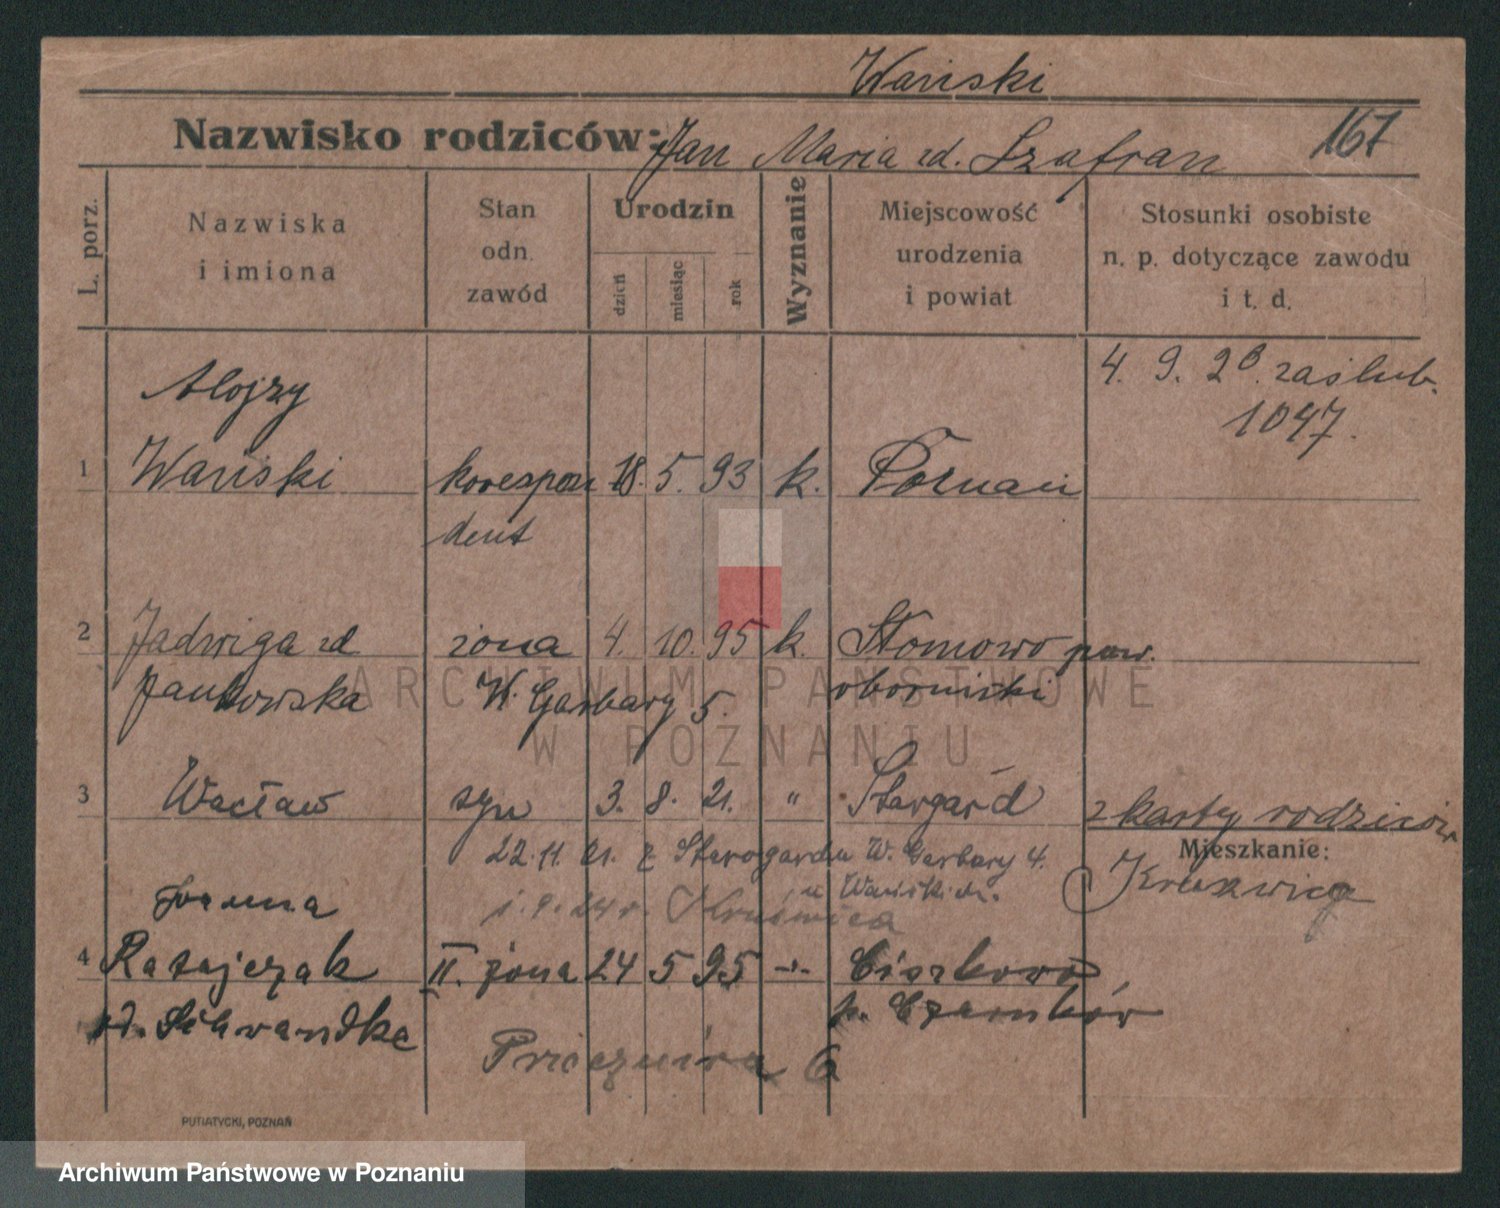 Wański
Nazwisko rodziców: Jan Maria zd. Szafran 167
L. porz.
Nazwiska i imiona
Stan odn. zawód
Urodzin
dzień miesiąc rok
Wyznanie
Miejscowość urodzenia i powiat
Stosunki osobiste n. p. dotyczące zawodu i t. d.
4. 9. 28. zaślub.
1047.
Alojzy
1 Wański korespon 18. 5. 93 k. Poznań
dent
2 Jadwiga zd żona 4. 10. 95 k. Słomowo pow.
Jankowska W. Garbary 5. obornicki
3 Wacław syn 3. 8. 21. " Stargard z karty rodziców
22. 11. 21. z Starogardu W. Garbary 4.
Mieszkanie:
u Wański
1. 9. 24 r. Kruświca Kruszwica
Joanna
4 Ratajczak II. żona 24 5 95 -"- Ciszkowo
zd. Schwandke p. Czarnków
6
PUTIATYCKI, POZNAŃ
ARCHIWUM PAŃSTWOWE
W POZNANIU
Archiwum Państwowe w Poznaniu